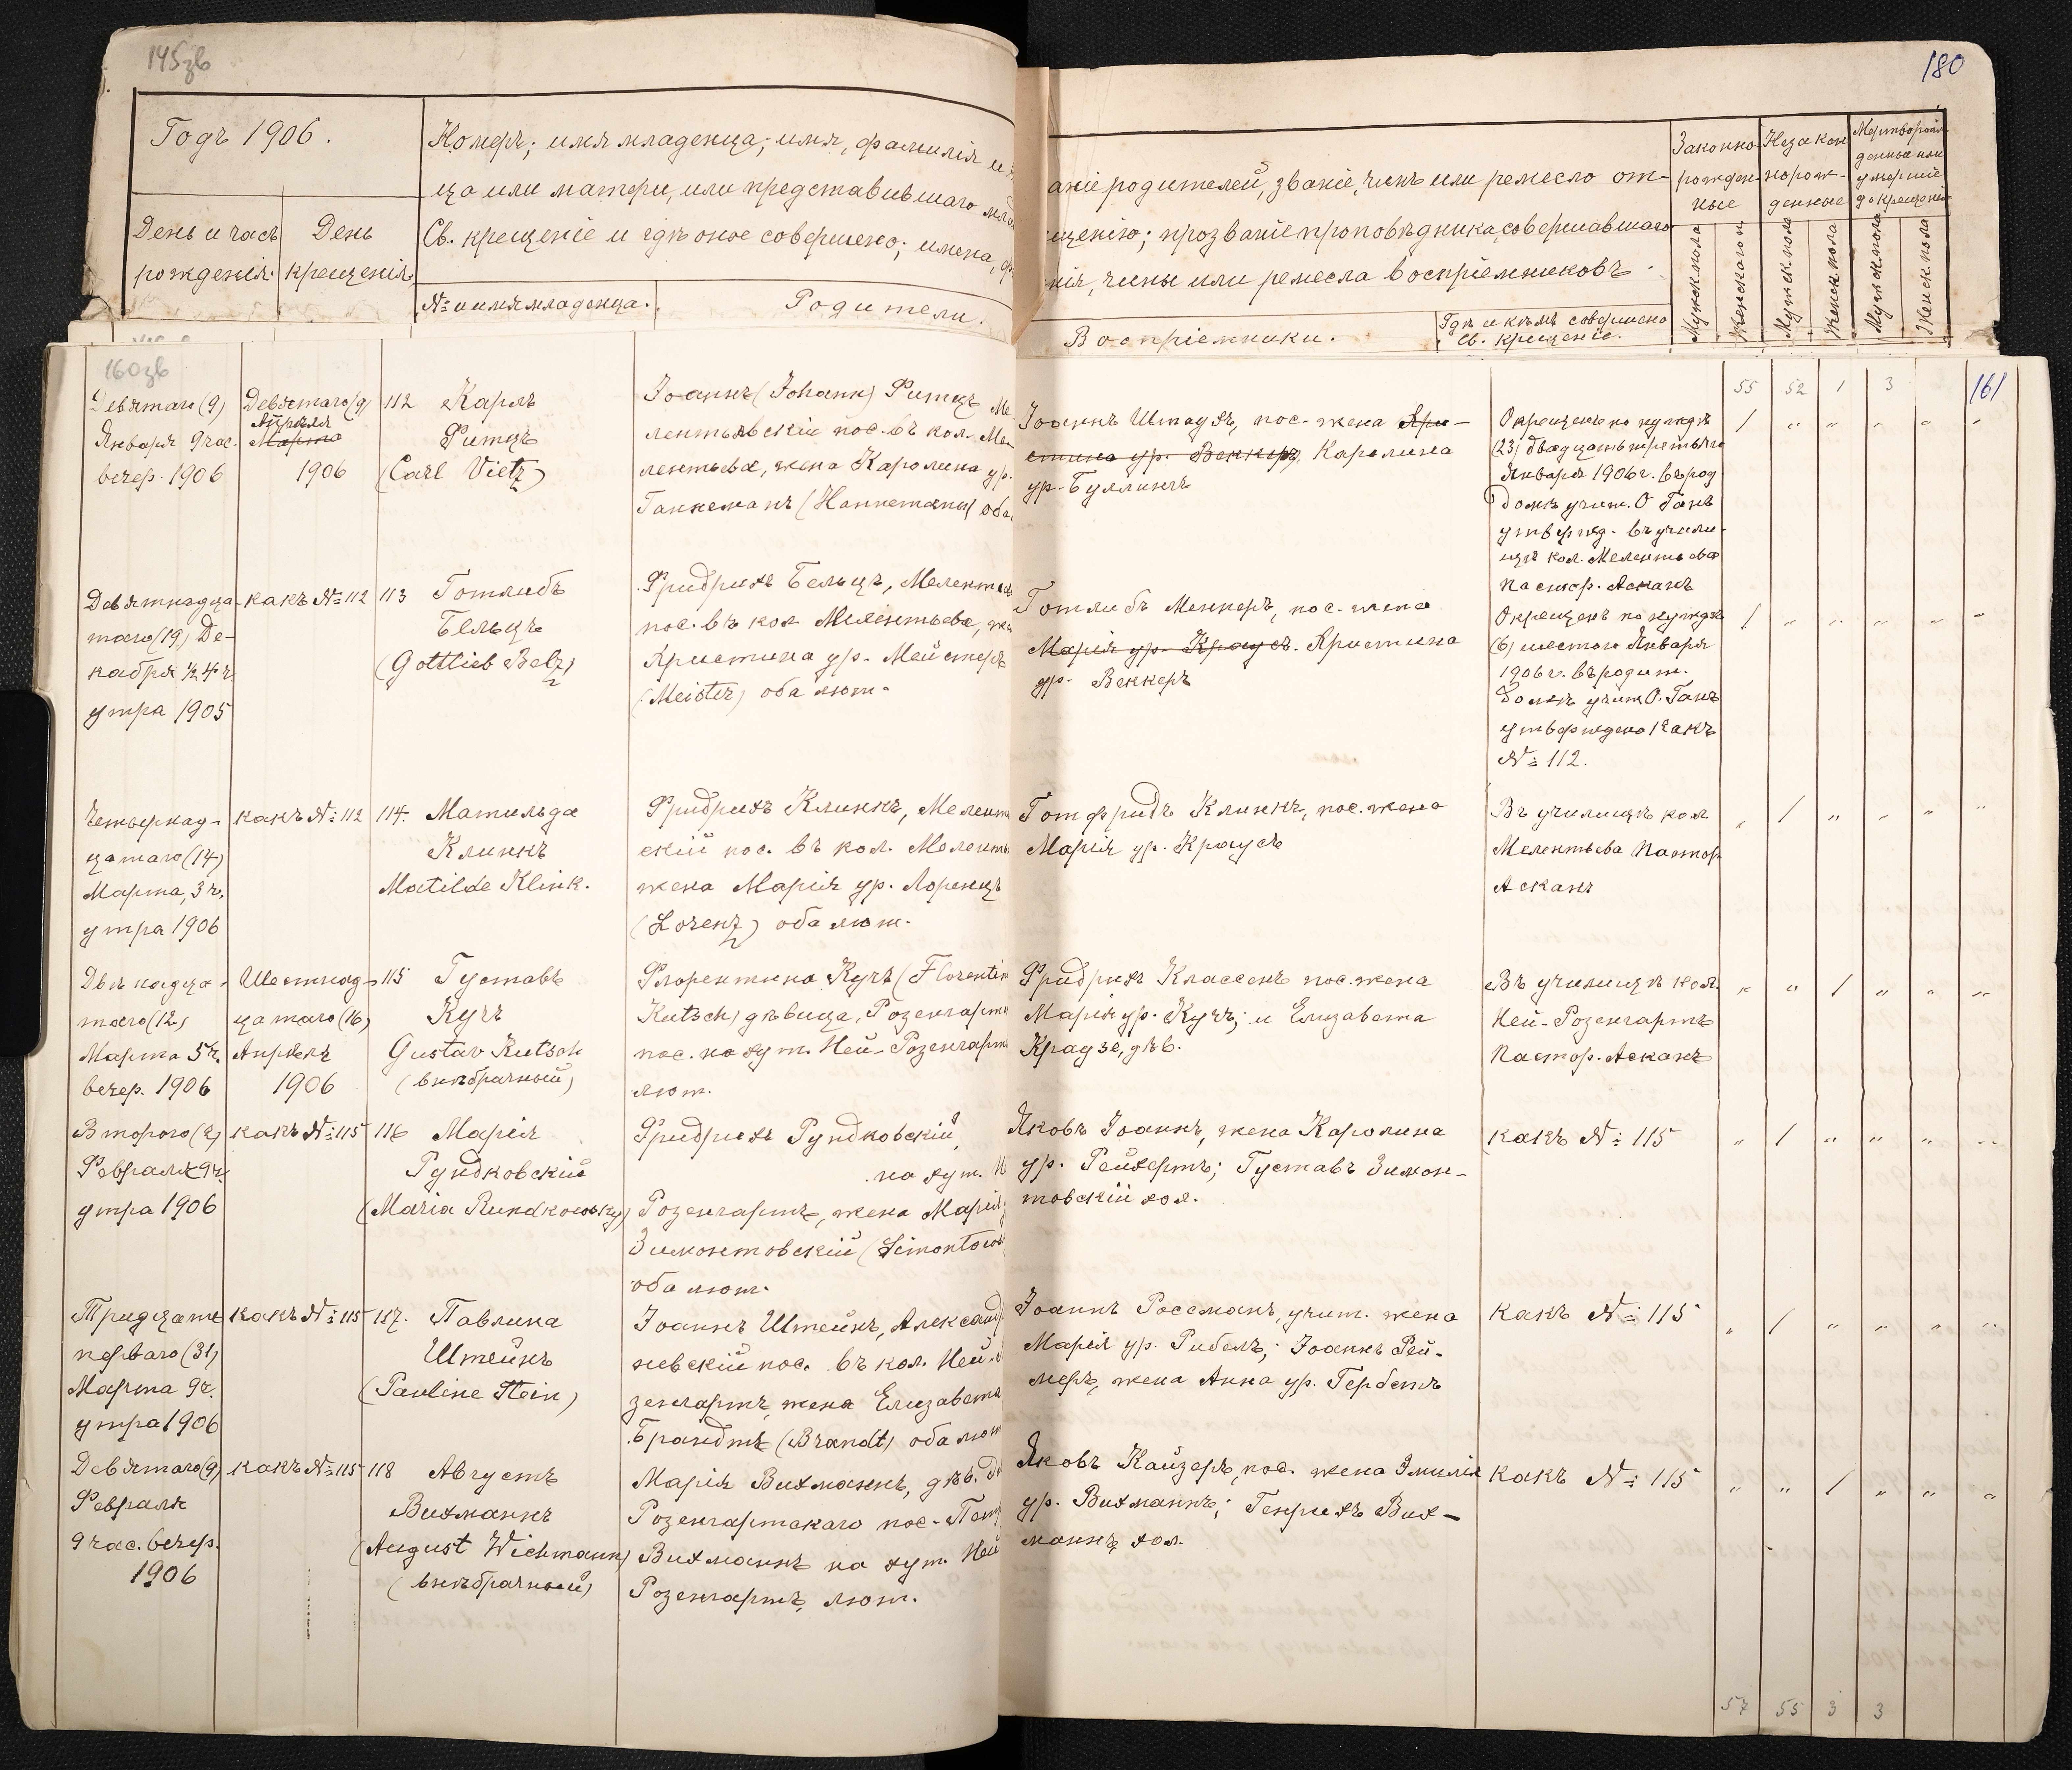 145зв
180
Годъ 1906.
День и часъ рожденія.
День крещенія.
Номеръ; имя младенца; имя, фамилія и
ца или матери, или представившаго мла
Св. крещеніе и гдѣ оное совершено; имена, ф
№ и имя младенца.
Родители.
аніе родителей, званіе, чинъ или ремесло от-
щенію; прозваніе проповѣдника, совершавшаго
нія, чины или ремесла воспріемниковъ.
Воспріемники.
Гдѣ и кѣмъ совершено
Св. крещеніе.
Законно-
рожден-
ные
Незакон
норож-
денные
Мертворож-
денные или
умершіе
до крещенія
Мужск. пола
Женск. пола
Мужск. пола
Женск. пола
Мужск. пола
Женск. пола
160зв
55 52 1 3
161
Девятаго (9)
Января 9 час.
вечер. 1906
Девятаго (9)
Апрѣля
Марта
1906
112 Карлъ
Фитцъ
(Carl Vietz)
Іоаннъ (Johann) Фитцъ Ме
лентьевскій пос. въ кол. Ме-
лентьева, жена Каролина ур.
Ганнеманъ (Hannemann) оба
Іоаннъ Штаухъ, пос. жена Хри-
стина ур. Веккеръ, Каролина
ур. Буллингъ
Окрещенъ по нуждѣ
(23) двадцать третьяго
Января 1906 г. въ род
домѣ учит. О Ганъ
утвержд. въ учили-
щѣ кол. Мелентьева
Пастор. Асканъ
/ " " " " "
Девятнадца-
таго (19) Де-
кабря ½ 4 ч.
утра 1905
какъ № 112
113 Готлибъ
Бельцъ
(Gottlieb Belz)
Фридрихъ Бельцъ, Мелентьев
пос. въ кол. Мелентьева, же
Христина ур. Мейстеръ
(Meister) оба лют.
Готлибъ Меккеръ, пос. жена
Марія ур. Краусъ. Христина
ур. Веккеръ
Окрещенъ по нуждѣ
(6) шестого Января
1906 г. въ родит.
домѣ учит. О. Ганъ
утверждено какъ
№ 112.
/ " " " " "
Четырнад-
цатаго (14)
Марта, 3 ч.
утра 1906
какъ № 112
114. Матильда
Клинкъ
Matilde Klink.
Фридрихъ Клинкъ, Мелент
скій пос. въ кол. Меленть
жена Марія ур. Лоренцъ
(Lorenz) оба лют.
Готфридъ Клинкъ, пос. жена
Марія ур. Краусъ
Въ училищѣ кол.
Мелентьева Пастор.
Асканъ
" / " " " "
Двѣнадца-
таго (12)
Марта 5 ч.
вечер. 1906
Шестнад-
цатаго (16)
Апрѣля
1906
115 Густавъ
Кучъ
Gustav Kutsch
(внѣбрачный)
Флорентина Кучъ (Florentin
Kutsch) дѣвица, Розенгарт
пос. на хут. Ней-Розенгарт
лют.
Фридрихъ Классенъ пос. жена
Марія ур. Кучъ; и Елизавета
Краузе, дѣв.
Въ училищѣ кол.
Ней-Розенгартъ
Пастор. Асканъ
" " / " " "
Второго (2)
Февраля 9 ч.
утра 1906
какъ № 115
116 Марія
Рундковскій
(Maria Rundkowsky)
Фридрихъ Рундковскій,
на хут. Н
Розенгартъ, жена Марія
Зимонтовскій (Simontows
оба лют.
Яковъ Іоаннъ, жена Каролина
ур. Рейхертъ; Густавъ Зимон-
товскій хол.
какъ № 115
" / " " " "
Тридцать
перваго (31)
Марта 9 ч.
утра 1906
какъ № 115
117. Павлина
Штейнъ
(Pauline Stein)
Іоаннъ Штейнъ, Александ
невскій пос. въ кол. Ней-
зенгартъ, жена Елизавета
Брандтъ (Brandt) оба лют
Іоаннъ Россманъ, учит. жена
Марія ур. Рибель; Іоаннъ Рей-
меръ, жена Анна ур. Гербетъ
какъ № 115
" / " " " "
Девятаго (9)
Февраля
9 час. вечер.
1906
какъ № 115
118 Августъ
Вихманнъ
(August Wichmann)
(внѣбрачный)
Марія Вихманнъ, дѣв.
Розенгартскаго пос. Пет
Вихманнъ на хут. Ней
Розенгартъ, лют.
Яковъ Кайзеръ, пос. жена Эмилія
ур. Вихманнъ; Генрихъ Вих-
маннъ, хол.
какъ № 115
" " / " " "
57 55 3 3